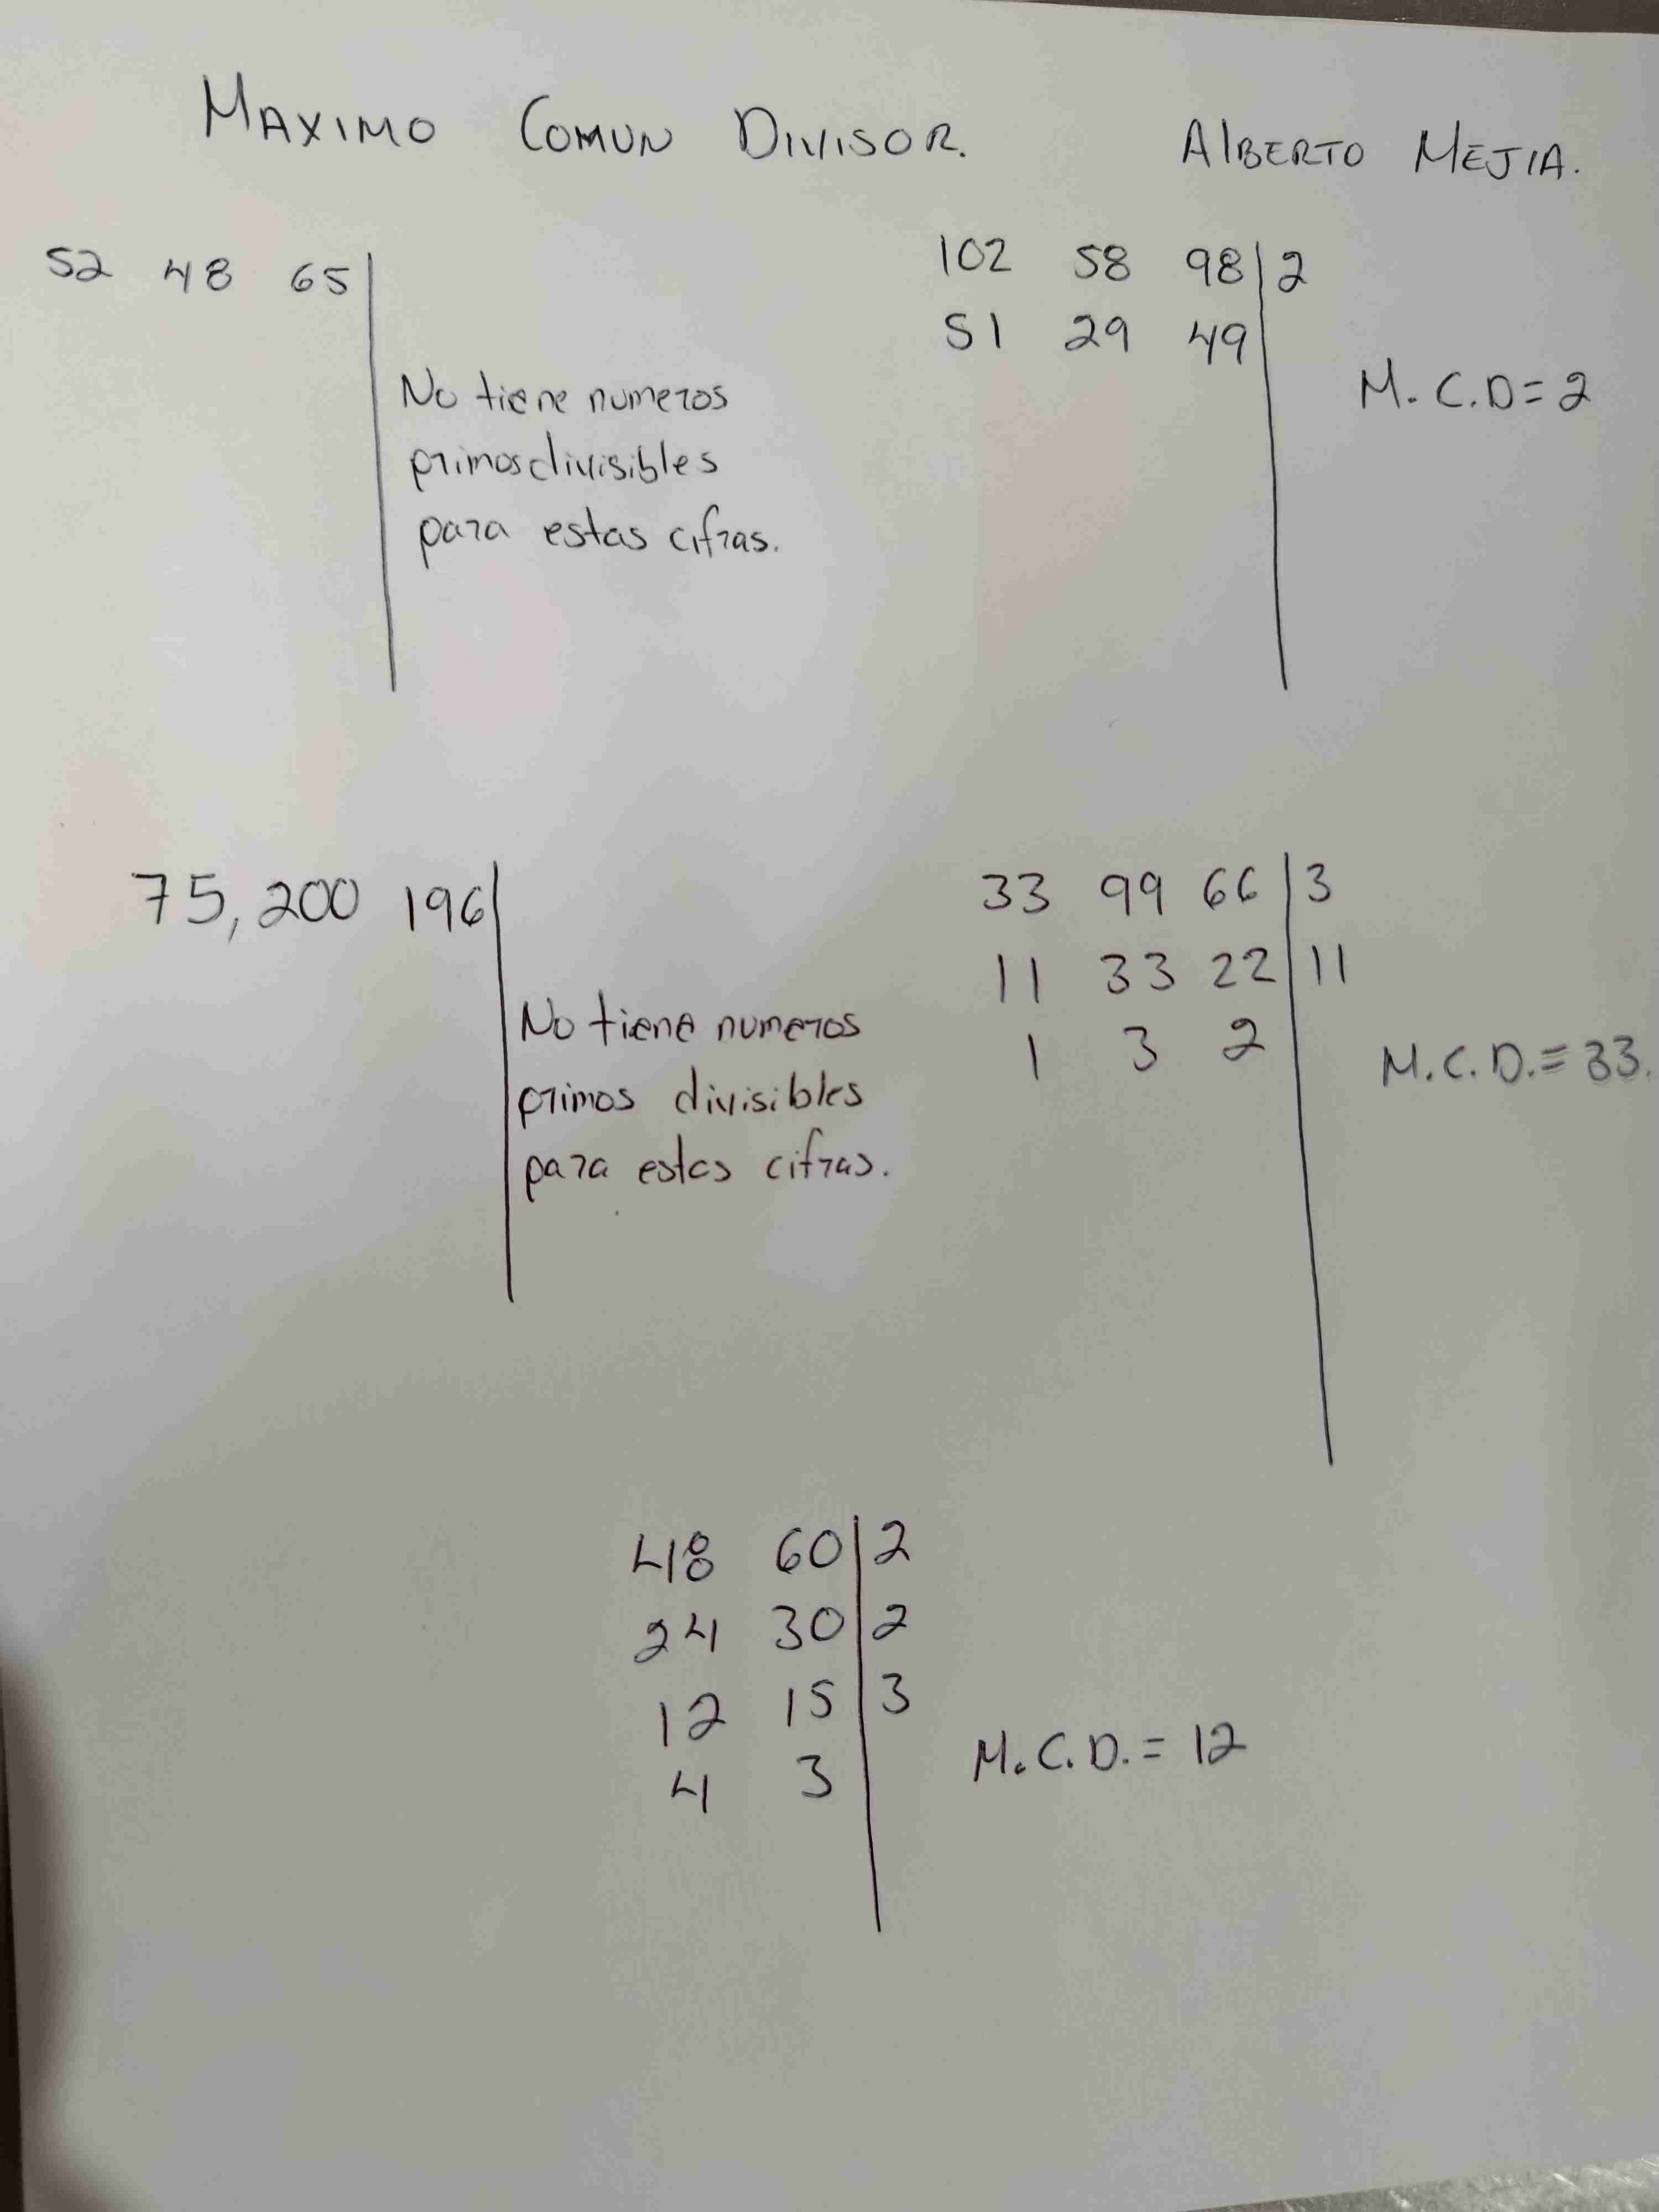 MAXIMO COMUN DIVISOR. ALBERTO MEJIA.
52 48 65
No tiene numeros
primos divisibles
para estas cifras.
102 58 98 2
51 29 49
M.C.D=2
75,200 196
No tiene numeros
primos divisibles
para estas cifras.
33 99 66 3
11 33 22 11
1 3 2
M.C.D.=33.
48 60 2
24 30 2
12 15 3
4 3
M.C.D.= 12